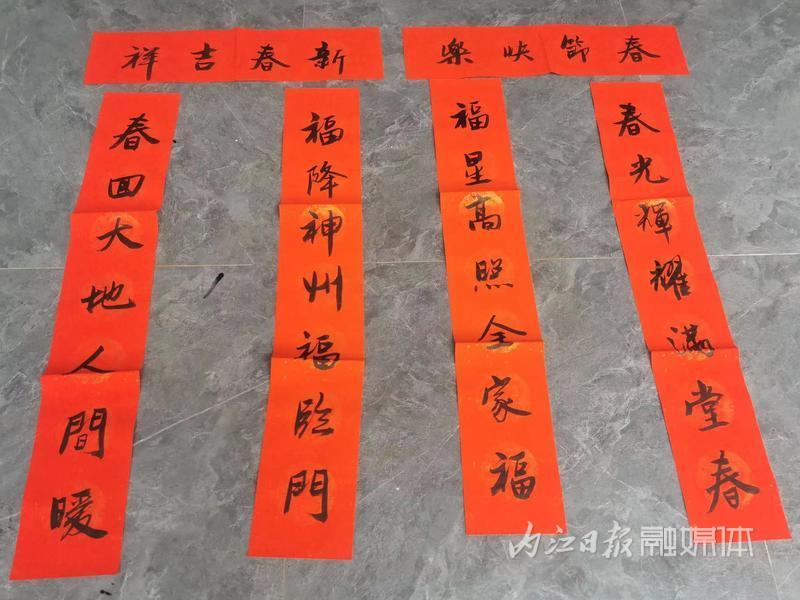 新春吉祥
春節快樂
春回大地人間暖
福降神州福臨門
福星高照全家福
春光輝耀滿堂春
内江日报融媒体